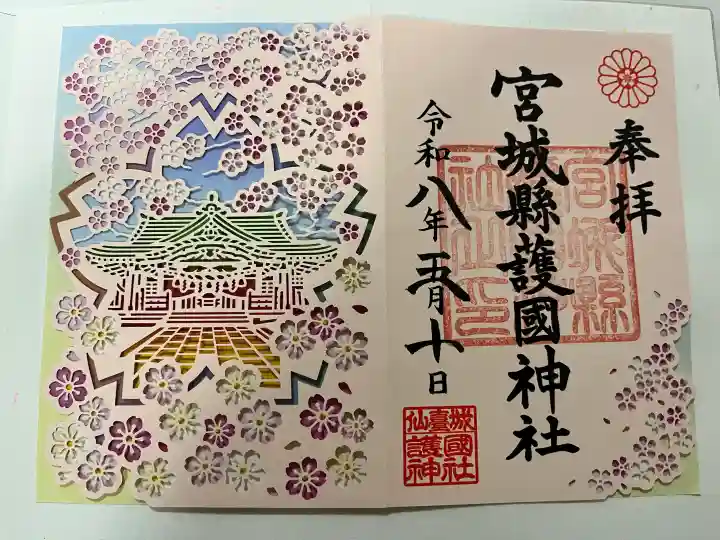 奉拝
宮城縣護國神社
令和八年五月十日
宮城縣
社之印
仙臺城
護國
神社